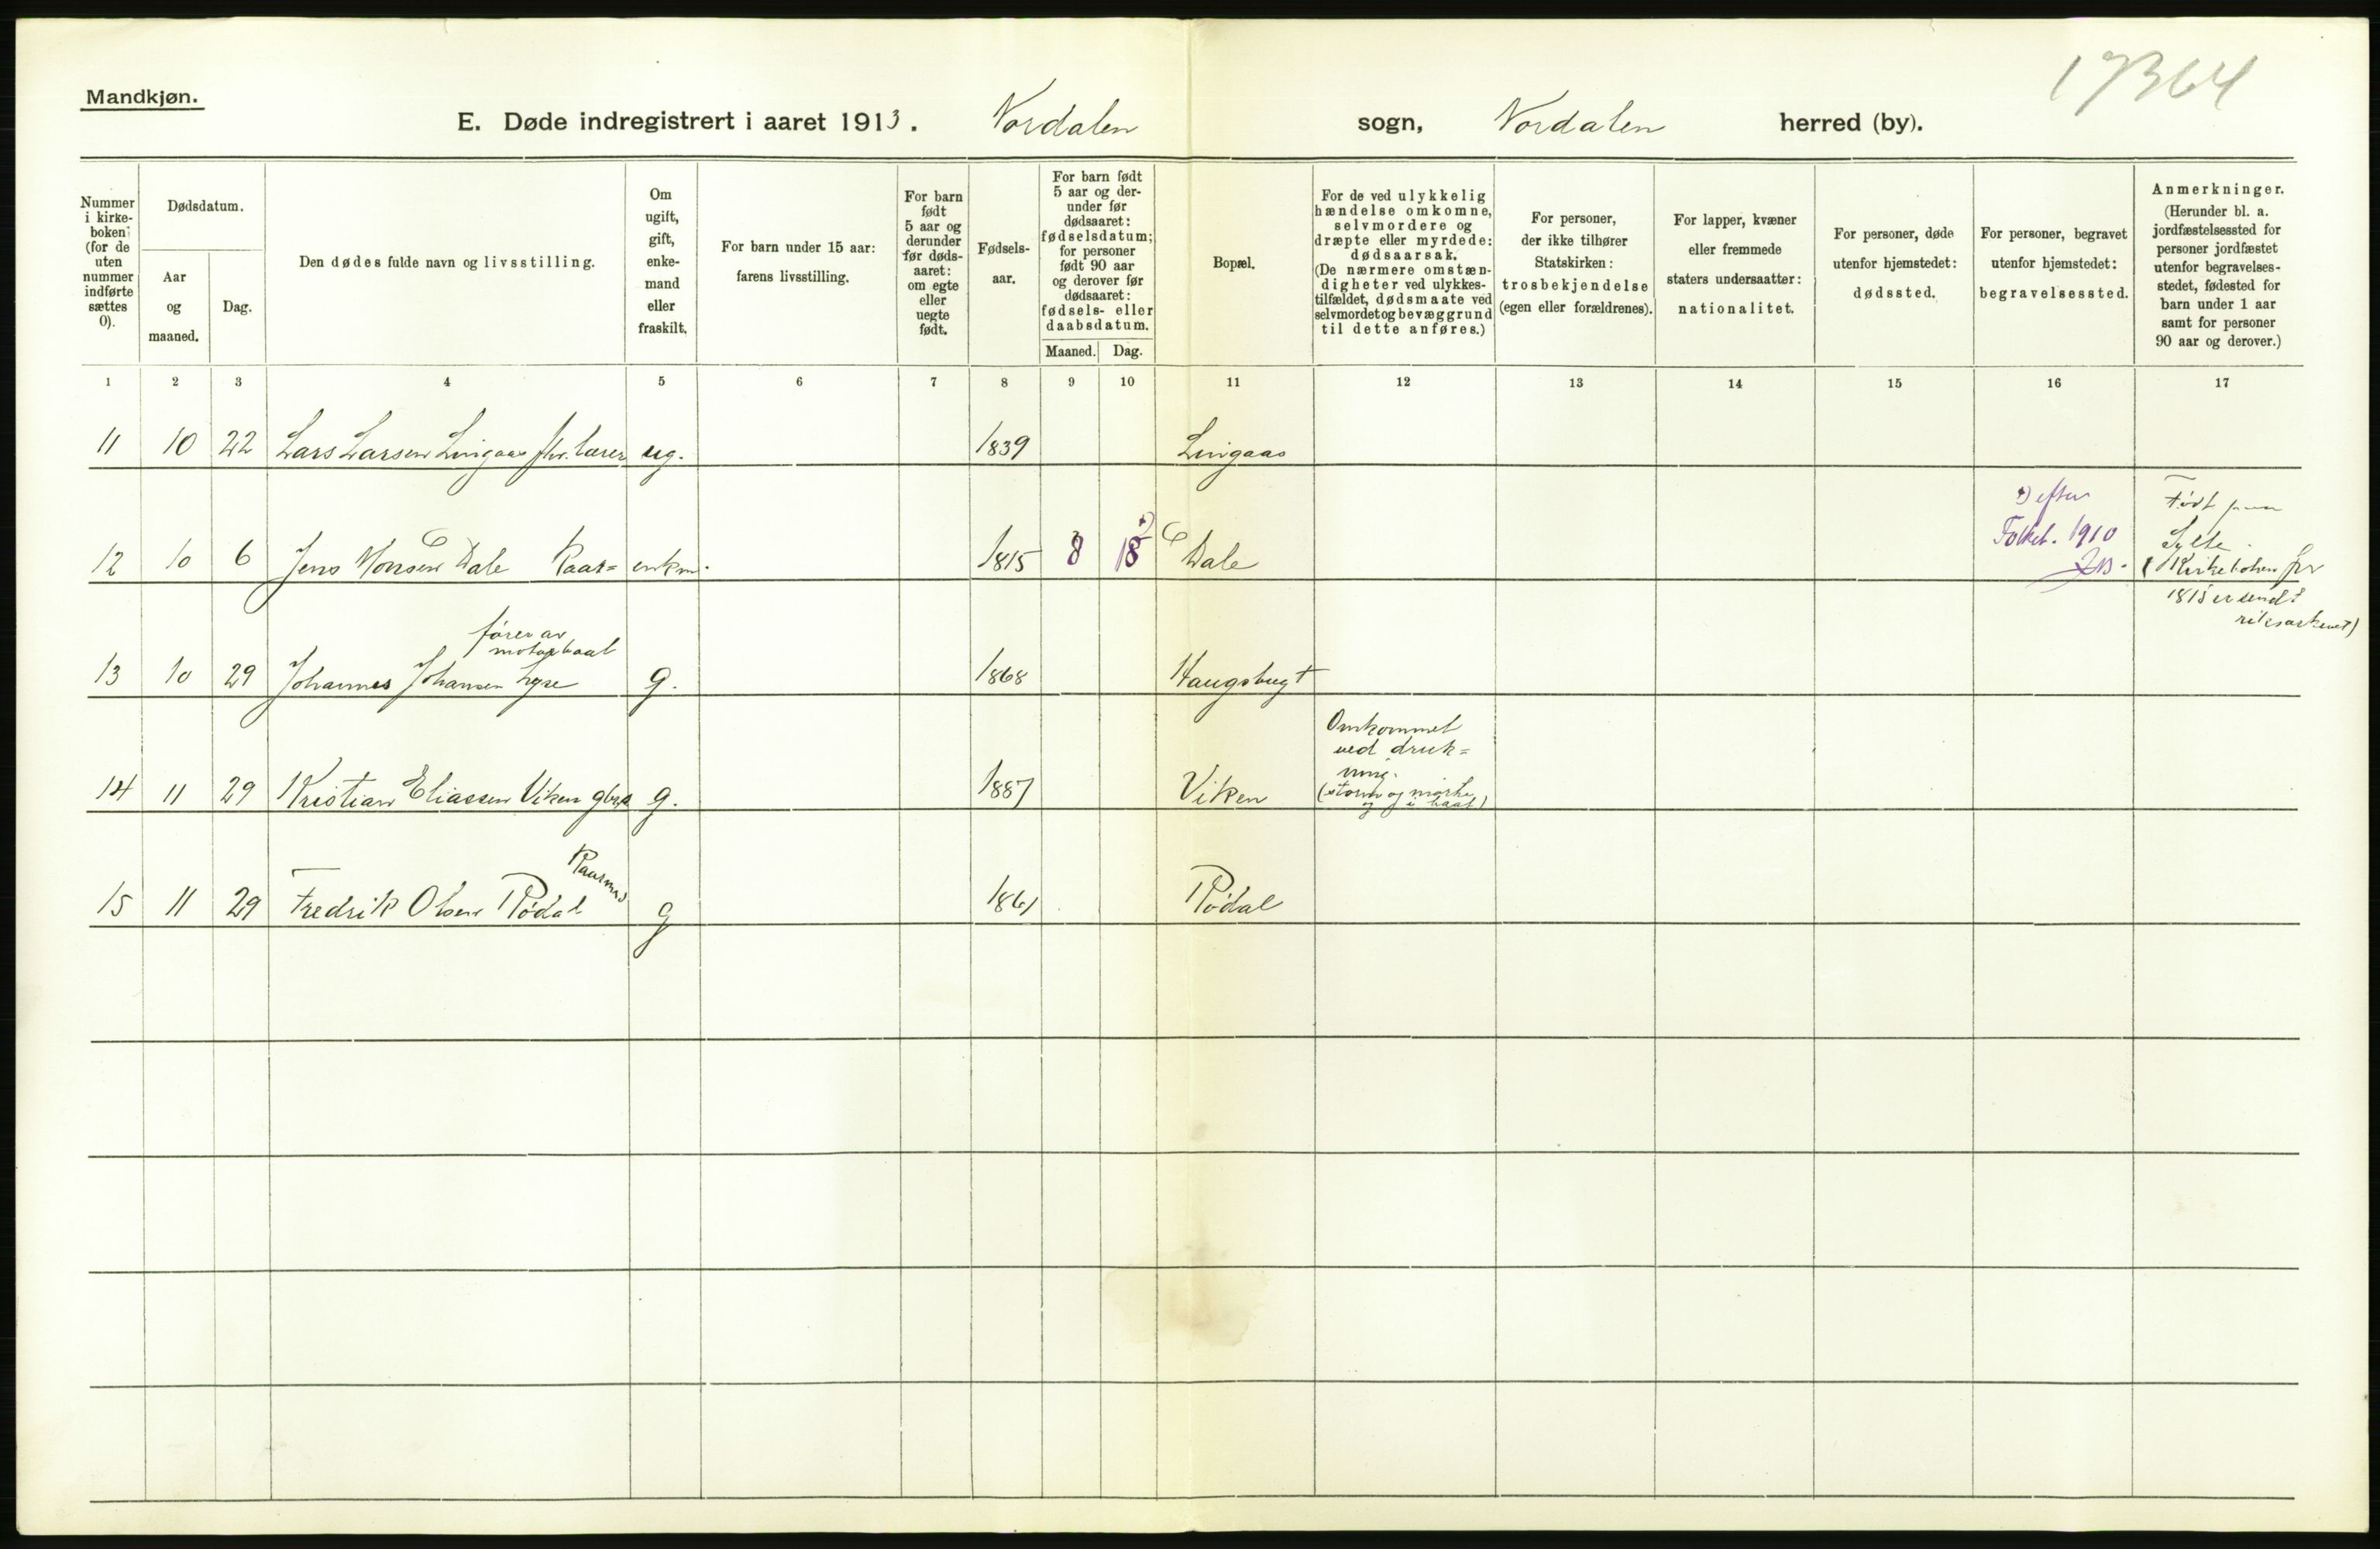 17364
Mandkjøn.
E. Døde indregistrert i aaret 1913. Nordalen sogn, Nordalen herred (by).
Nummer
i kirke-
boken
(for de
uten
nummer
indførte
sættes
0).
Dødsdatum.
Aar
og
maaned.
Dag.
Den dødes fulde navn og livsstilling.
Om
ugift,
gift,
enke-
mand
eller
fraskilt.
For barn under 15 aar:
farens livsstilling.
For barn
født
5 aar og
derunder
før døds-
aaret:
om egte
eller
uegte
født.
Fødsels-
aar.
For barn født
5 aar og der-
under før
dødsaaret:
fødselsdatum;
for personer
født 90 aar
og derover før
dødsaaret:
fødsels- eller
daabsdatum.
Maaned. Dag.
Bopæl.
For de ved ulykkelig
hændelse omkomne,
selvmordere og
dræpte eller myrdede:
dødsaarsak.
(De nærmere omstæn-
digheter ved ulykkes-
tilfældet, dødsmaate ved
selvmordet og bevæggrund
til dette anføres.)
For personer,
der ikke tilhører
Statskirken:
trosbekjendelse
(egen eller forældrenes).
For lapper, kvæner
eller fremmede
staters undersaatter:
nationalitet.
For personer, døde
utenfor hjemstedet:
dødssted.
For personer, begravet
utenfor hjemstedet:
begravelsessted.
Anmerkninger.
(Herunder bl. a.
jordfæstelsessted for
personer jordfæstet
utenfor begravelses-
stedet, fødested for
barn under 1 aar
samt for personer
90 aar og derover.)
1 2 3 4 5 6 7 8 9 10 11 12 13 14 15 16 17
11 10 22 Lars Larsen Lingaas fhv. lærer ug. 1839 Lingaas
12 10 6 Jens Monsen Dale Kaar= enkm. 1815 8 18 Dale
efter
Folket. 1910
Født paa
Sylte.
(Kirkeboken for
1815 er sendt
riksarkivet)
fører av
motorbaat
13 10 29 Johannes Johansen Lyse g. 1868 Haugsbugt
14 11 29 Kristian Eliassen Viken gbr. g. 1887 Viken
Omkommet
ved druk=
ning.
(storm og mørke
og i baat)
Kaarmand
15 11 29 Fredrik Olsen Rødal g 1861 Rødal